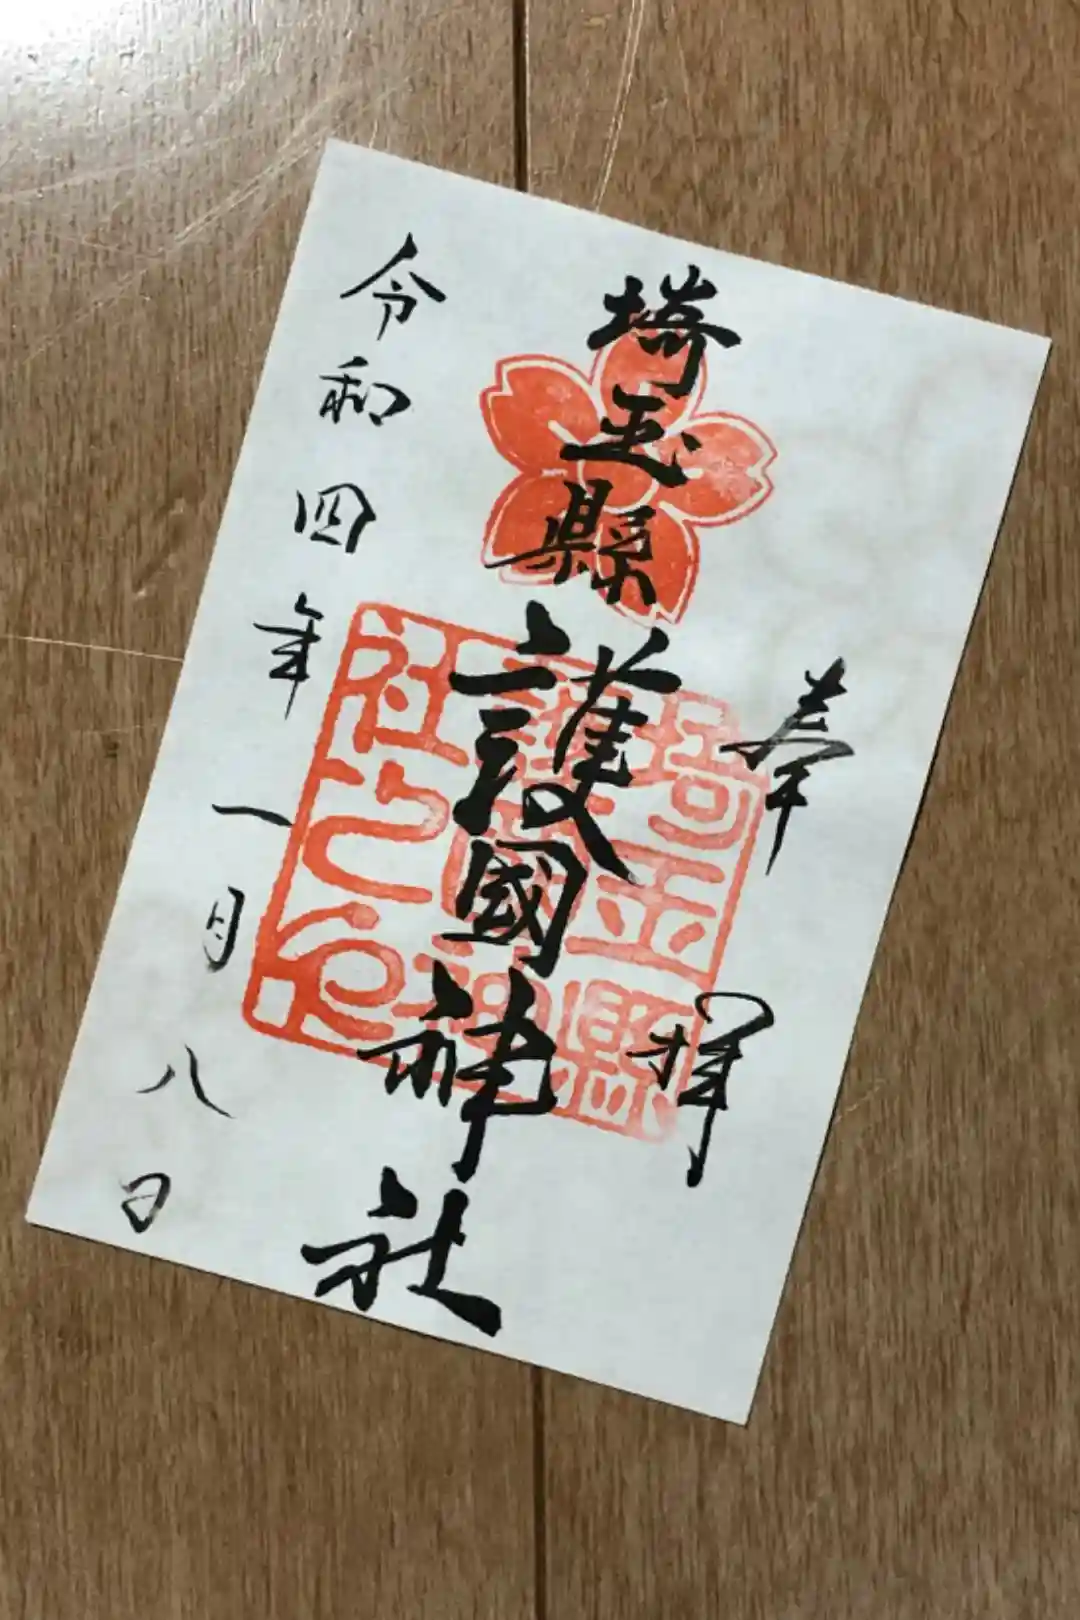 奉拝
埼玉縣護國神社
令和四年一月八日
埼玉縣
護國神
社之印